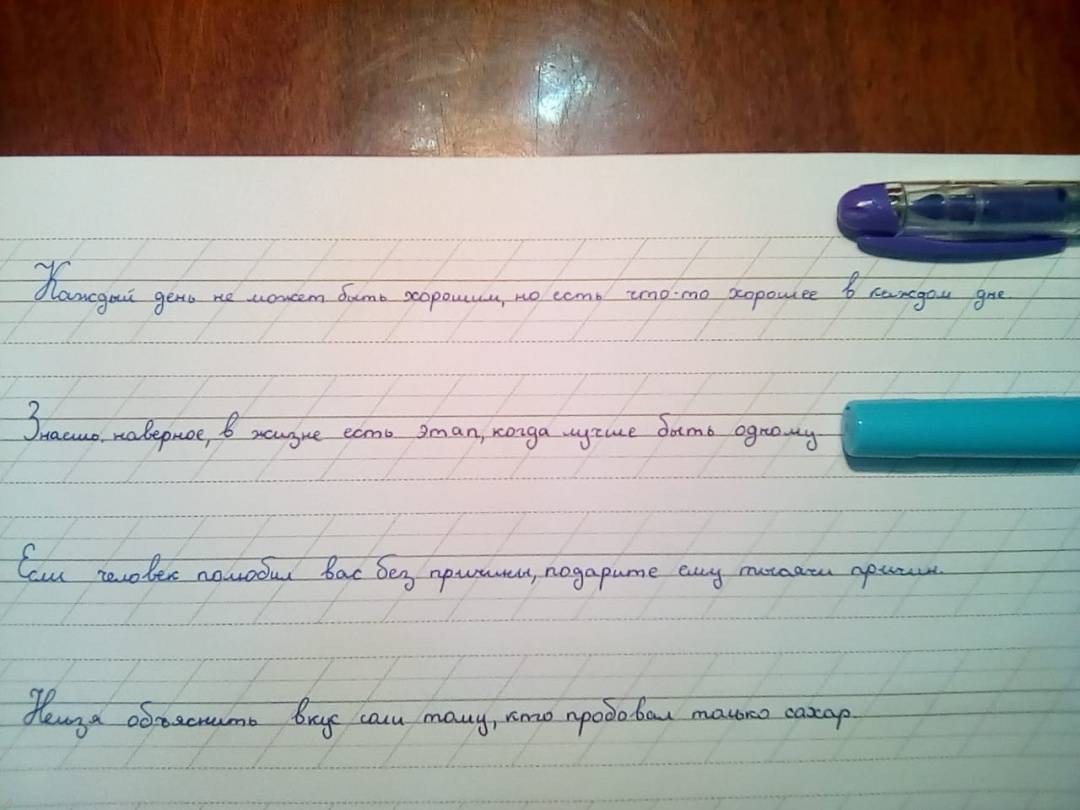 Каждый день не может быть хорошим, но есть что-то хорошее в каждом дне.
Знаешь, наверное, в жизне есть этап, когда лучше быть одному
Если человек полюбил вас без причины, подарите ему тысячи причин.
Нельзя объяснить вкус соли тому, кто пробовал только сахар.